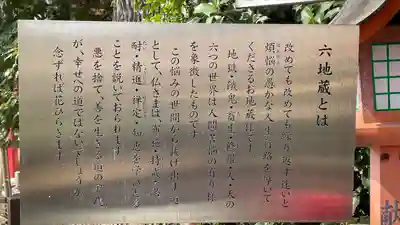 六地蔵とは
改めても改めても繰り返す迷いと
煩悩の愚かな人生の路を導いて
くださるお地蔵様です
地獄・餓鬼・畜生・修羅・人・天の
六つの世界は人間苦悩の有り様
を象徴したものです
この悩みの世間から抜け出す
として仏さまは、布施・持戒・忍
耐・精進・禅定・知恵を
ことを説いておられます
悪を捨て、善を生きる
が、幸せへの道ではないでしょうか
念ずれば花ひらきます
献